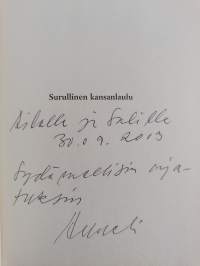 Surullinen kansanlaulu
Ailalle ja Sulille
30.09.2003
Sydämellisin aja-
tuksin
Anneli